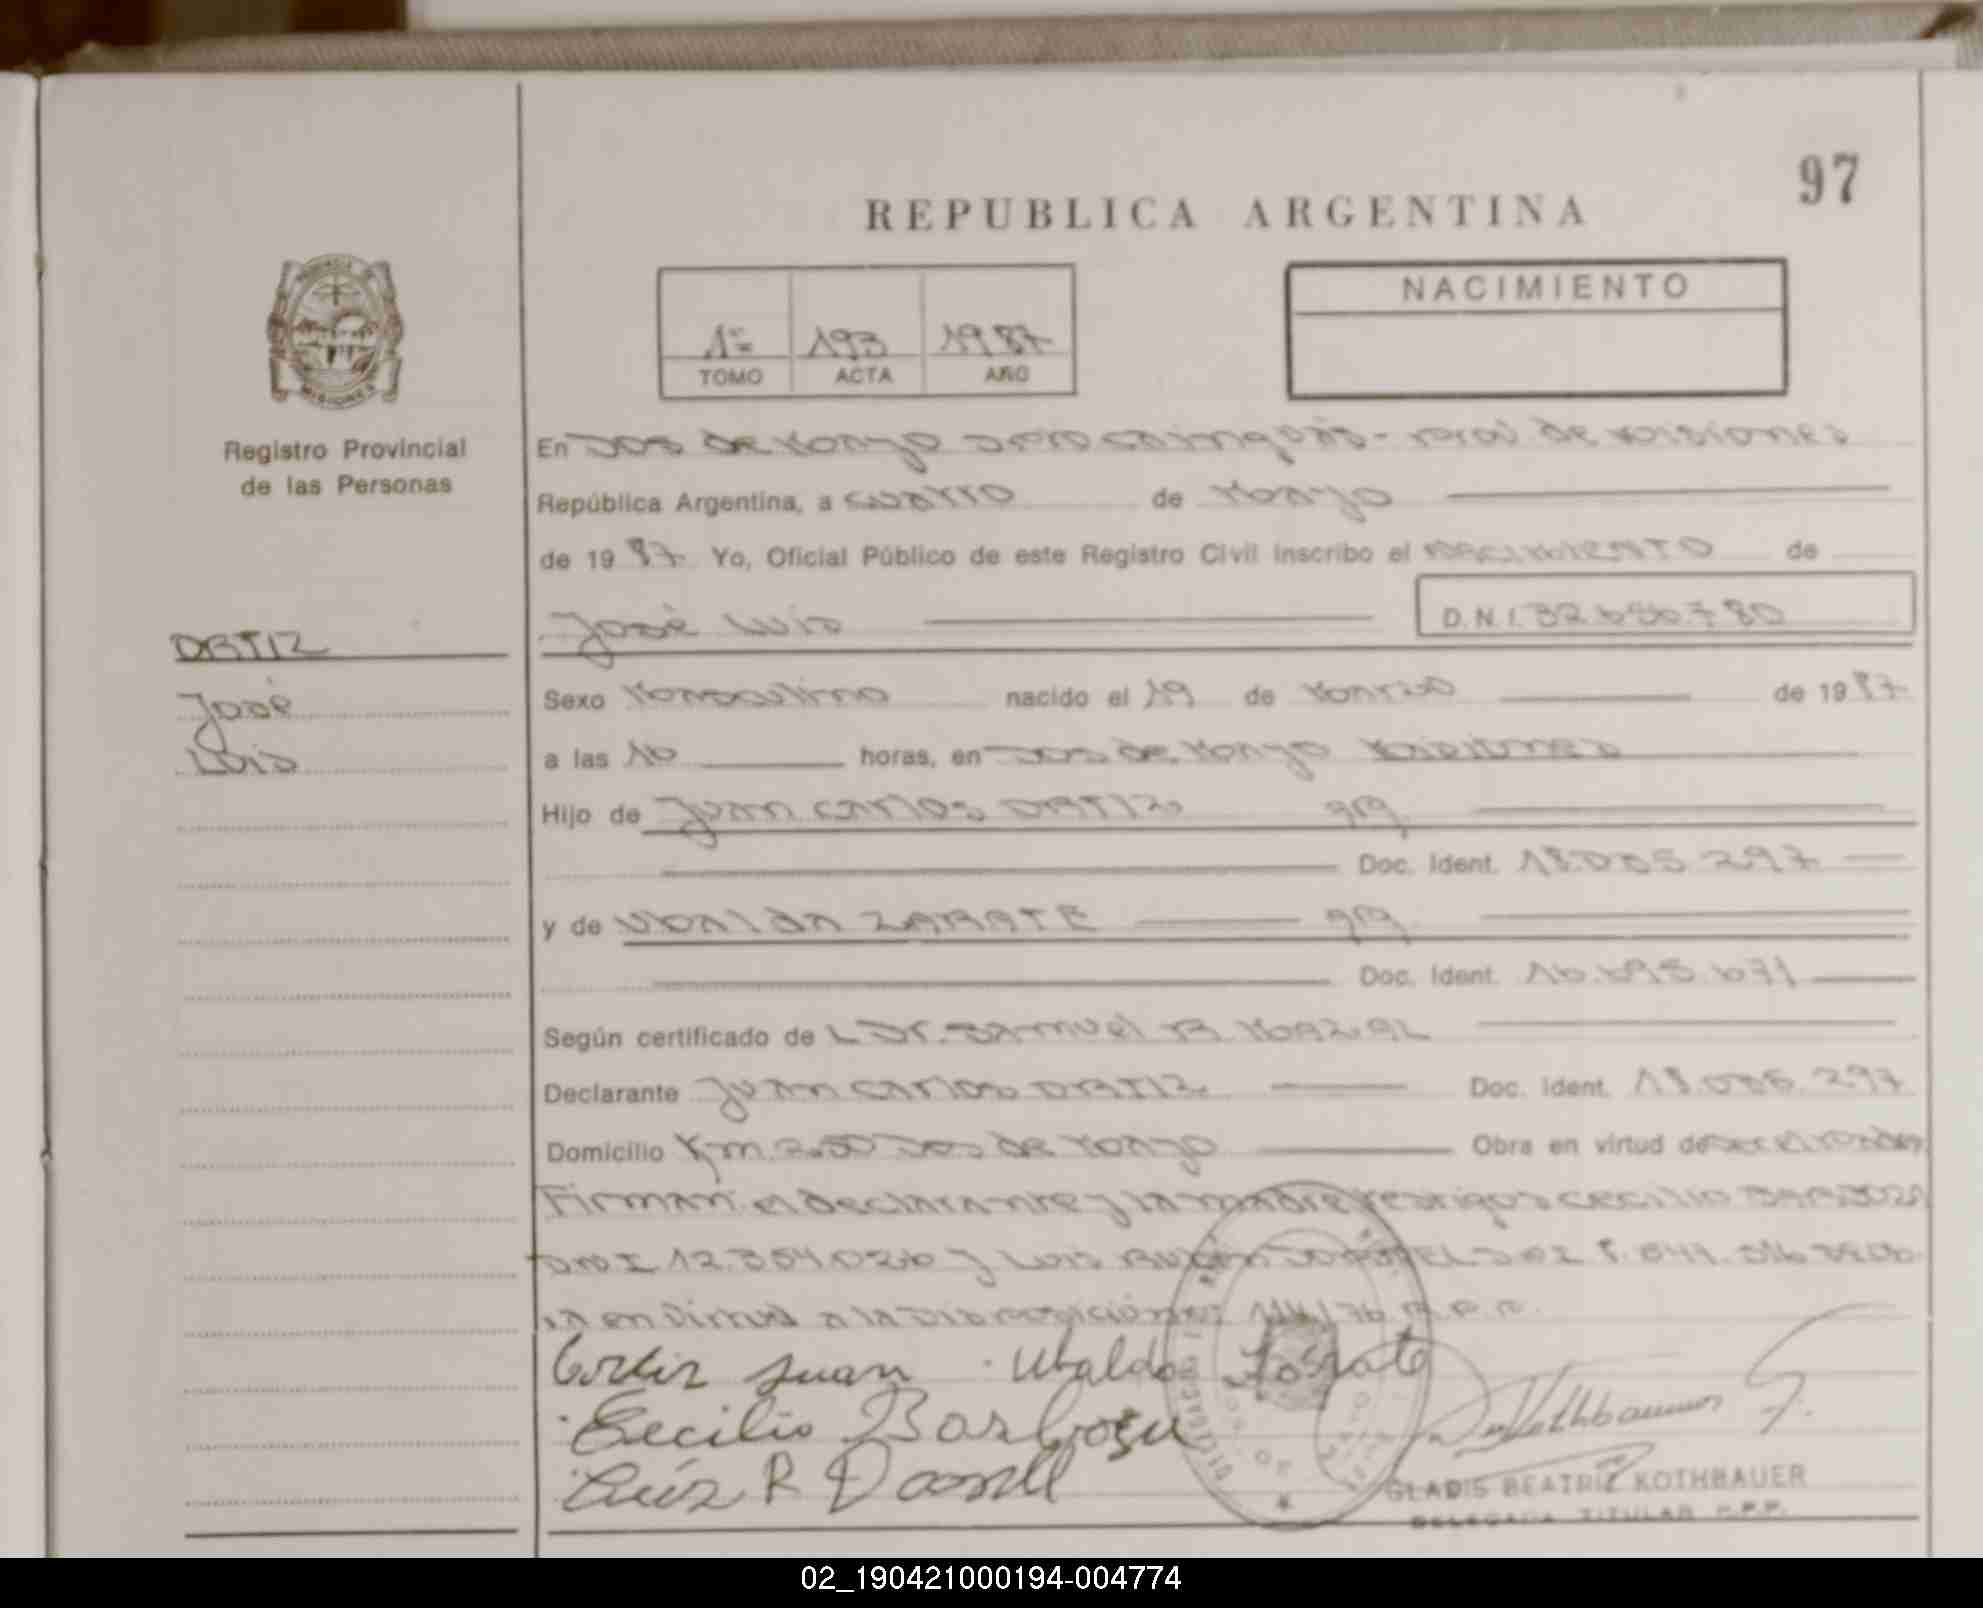 97
REPUBLICA ARGENTINA
PROVINCIA DE
MISIONES
Registro Provincial
de las Personas
1º 193 1987
TOMO ACTA AÑO
NACIMIENTO
En Dos de Mayo Dpto Cainguás - Pcia de Misiones
República Argentina, a cuatro de Mayo
de 1987 Yo, Oficial Público de este Registro Civil Inscribo el nacimiento de
José Luis
D.N.I. 32.646.780
ORTIZ
José
Luis
Sexo Masculino nacido el 19 de Marzo de 1987
a las 10 horas, en Dos de Mayo Misiones
Hijo de Juan Carlos ORTIZ arg
Doc. Ident. 18.005.297
y de ZARATE arg
Doc. Ident. 16.695.671
Según certificado de L Dr. Samuel
Declarante Juan Carlos ORTIZ Doc. Ident. 18.005.297
Domicilio Km. 250 Dos de Mayo Obra en virtud de
Firman el declarante y la madre testigos Cecilio BARBOZA
DNI 12.354.026 y Luis
en virtud a la 114/76 R.P.P.
Ortiz Juan
Cecilio Barboza
Luis R
Kothbauer
GLADIS BEATRIZ KOTHBAUER
DELEGADA TITULAR R.P.P.
02_190421000194-004774